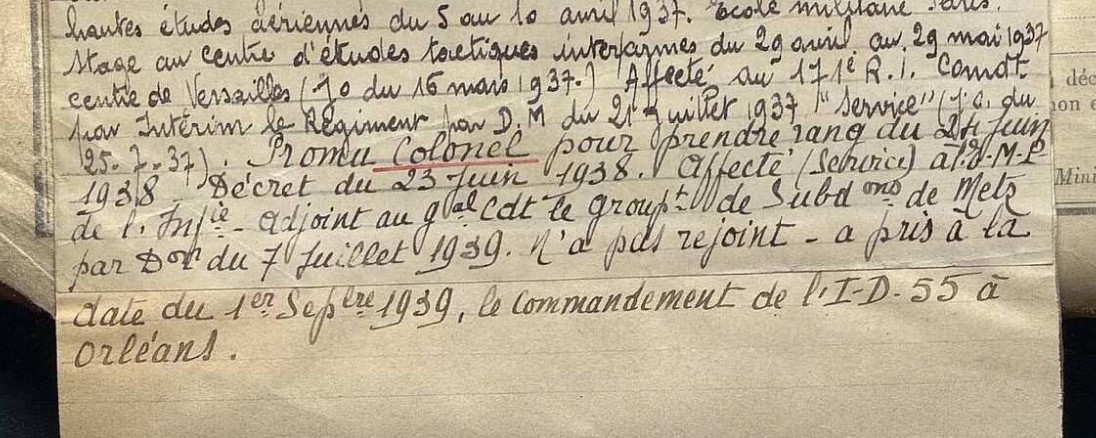 hautes études aériennes du 5 au 10 avril 1937. Ecole militaire Paris.
Stage au centre d'études tactiques interarmes du 29 avril au 29 mai 1937
centre de Versailles (Jo du 16 mars 1937.) Affecté au 171e R.I. Comdt
par Intérim le Régiment par D.M du 21 Juillet 1937 "Service" (J.O. du
25.7.37). Promu Colonel pour prendre rang du 24 Juin
1938 Décret du 23 Juin 1938. Affecté (Service) à l'E-M-P
de l'Infie - adjoint au gal Cdt le groupt de Subdons de Metz
par Don du 7 Juillet 1939. N'a pas rejoint - a pris à la
date du 1er Sepbre 1939, le Commandement de l'I-D-55 à
Orléans.
déc
non e
Mini